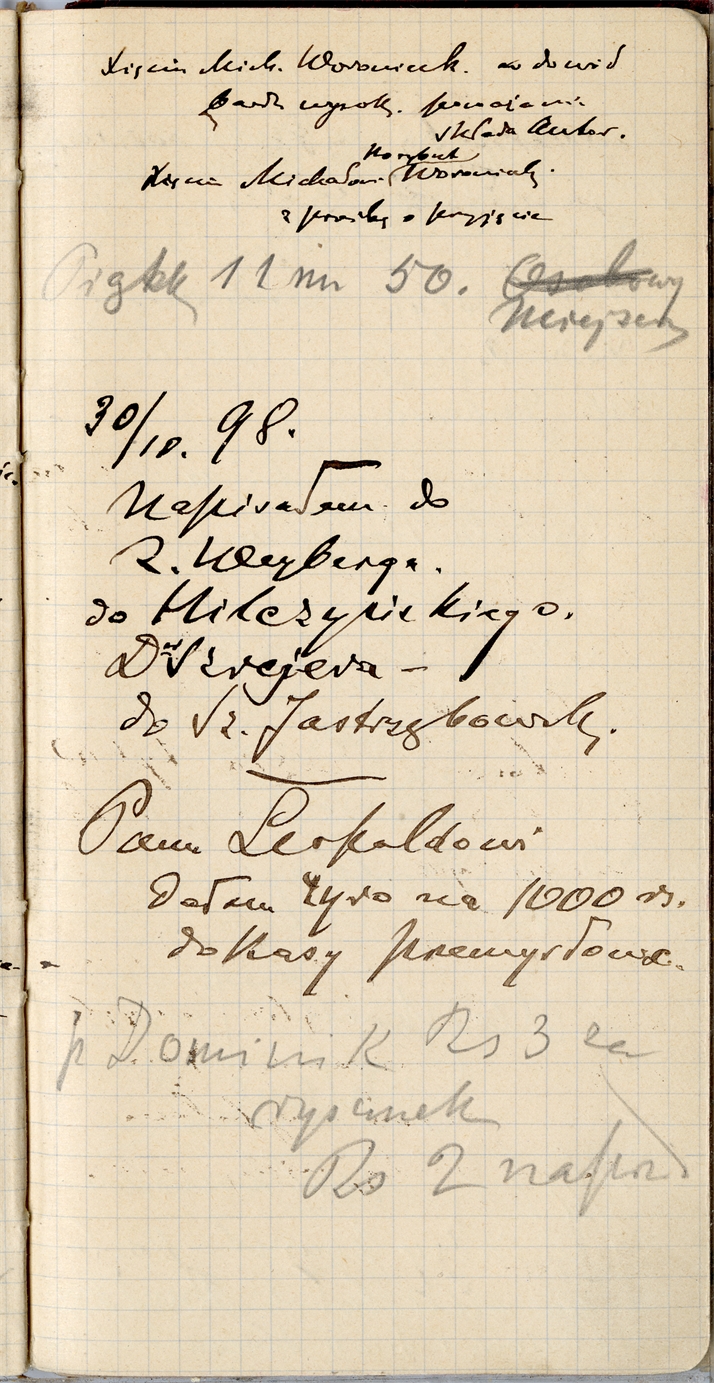 Xięciu Mich. Woronieck. w dowód
bardz wysok. poważania
składa Autor.
Korybut
Xięciu Michałowi Woronieck.
z prośbą o przyjęcie
Piątek 11 m 50. Osobowy
30/10. 98.
Napisałem do
Z. Weyberga.
do Hilczyńskiego.
Dra Szrejera –
do Sz. Jastrzębowsk.
Panu Leopoldowi
Dałem Żyro na 1000 rs.
do Kasy przemysłowe.
p Dominik Rs 3 za
rysunek
Rs 2 napiw